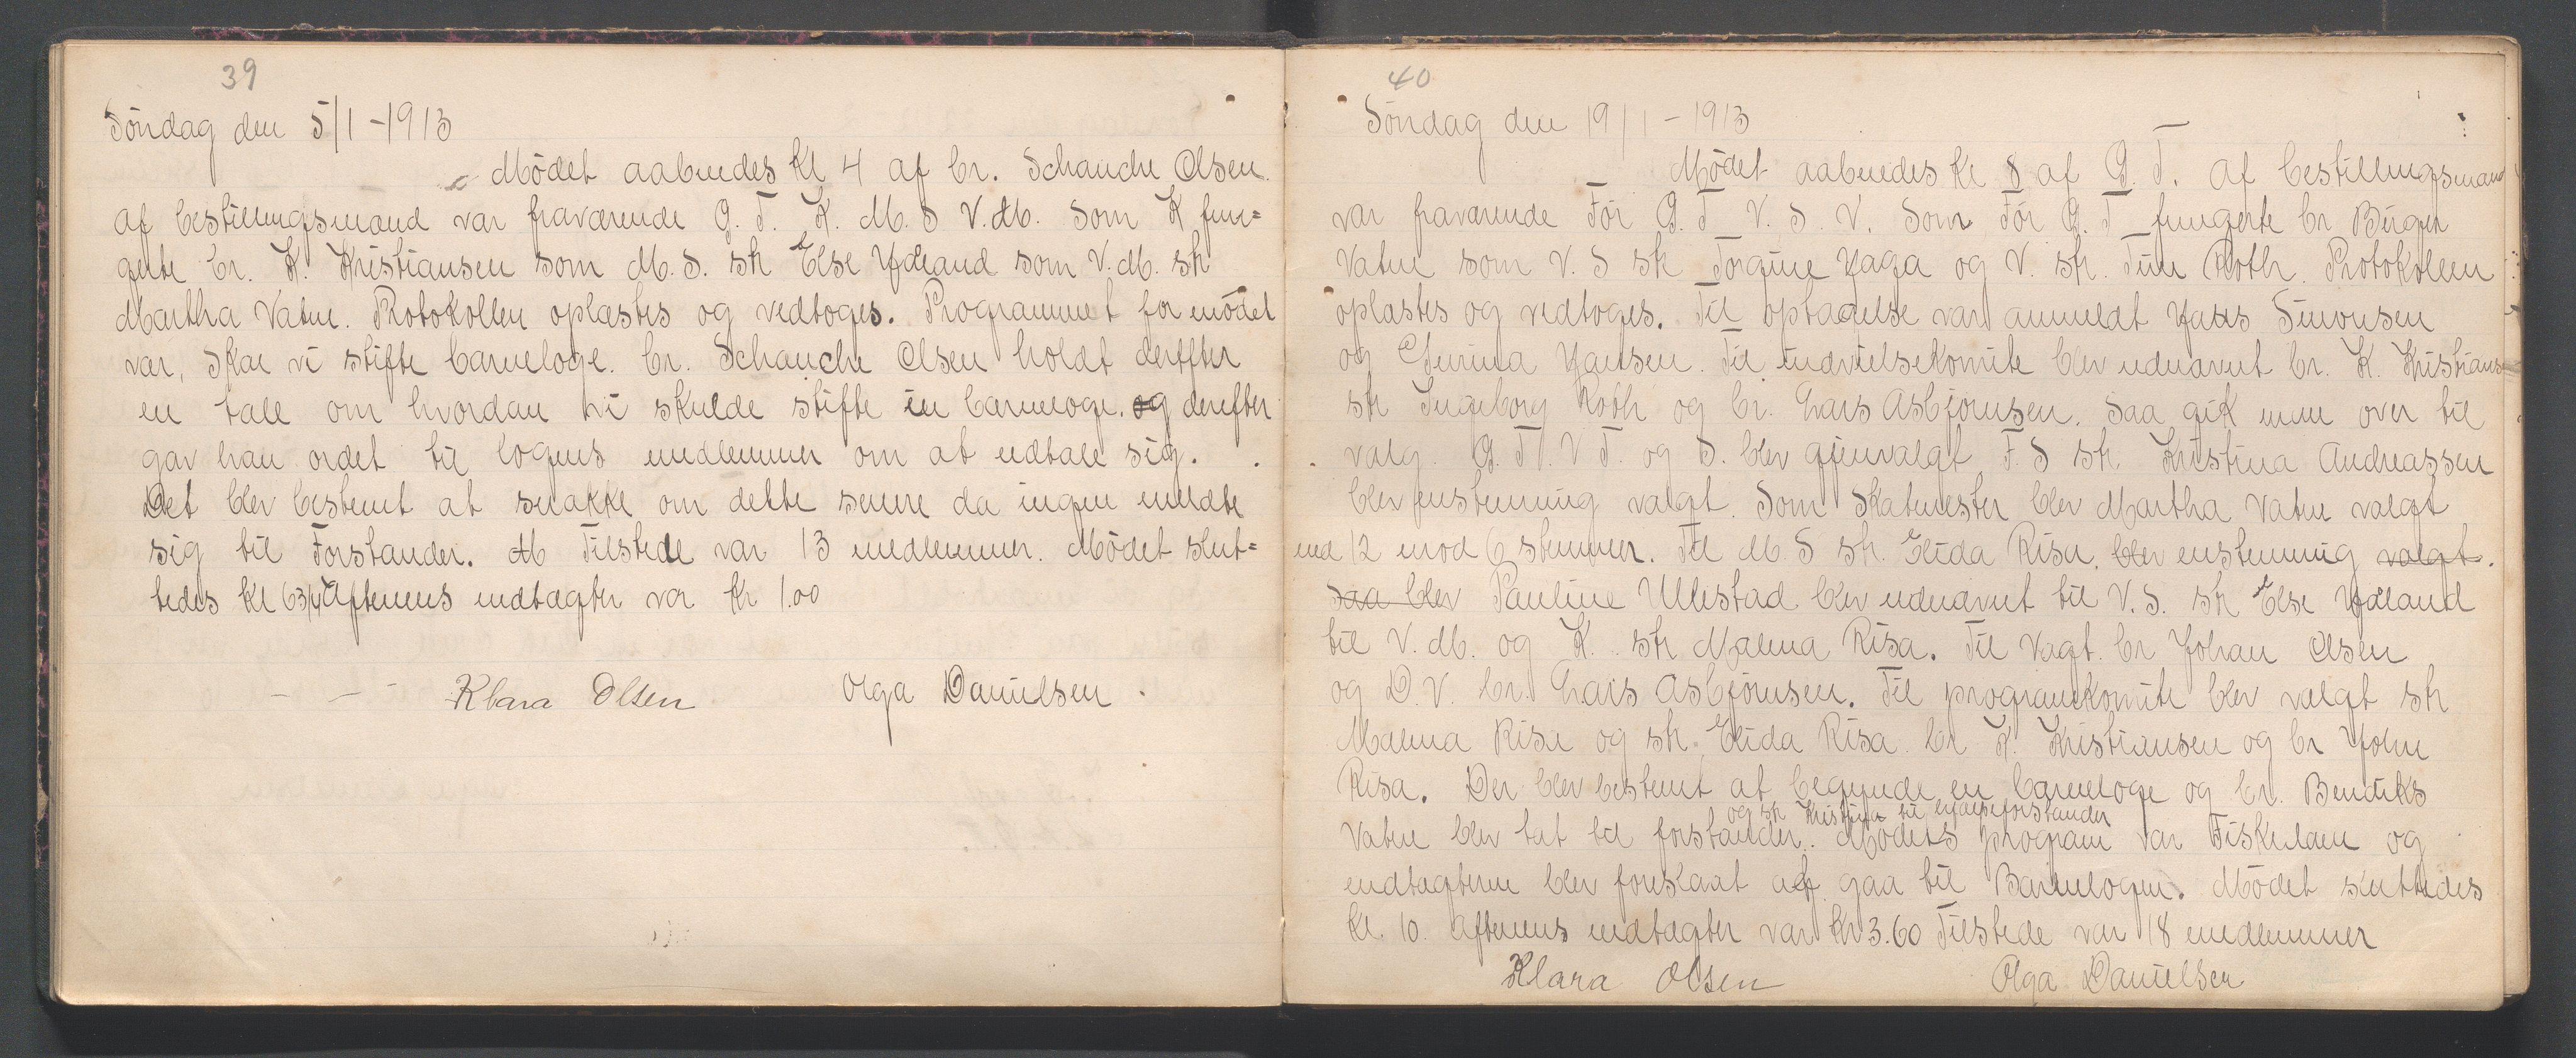 39
Söndag den 5/1-1913
Mödet aabnedes Kl 4 af br. Schanche Olsen.
af bestillingsmænd var fraværende G. T. K. M. S V. M. Som K fun=
gerte br. K. Kristiansen som M. S. str Else Ydland som V. M. str
Martha Vatne. Protokollen oplæstes og vedtoges. Programmet for mödet
var, Skal vi stifte barneloge. br. Schanche Olsen holdt derefter
en tale om hvordan vi skulde stifte en barneloge. og derefter
gav han ordet til logens medlemmer om at udtale sig.
Det blev bestemt at snakke om dette senere da ingen meldte
sig til Forstander. Tilstede var 13 medlemmer. Mödet slut=
tedes Kl 6 3/4 Aftenens indtægter var Kr 1.00
Klara Olsen Olga Danielsen
40
Söndag den 19/1-1913
Mödet aabnedes Kl 8 af G. T. af bestillingsmænd
var fraværende För G. T V. S. V. Som För G. T fungerte br Birger
Vatne som V. S str Torgine Haga og V. str. Tine Roth. Protokollen
oplæstes og vedtoges. Til optagelse var anmeldt Hans Simonsen
og Gurina Hansen. Til indvielseskomite blev udnævnt br. K. Kristians
str Ingeborg Roth og br. Lars Asbjörnsen. Saa gik man over til
valg. G. T. V T. og S. blev gjenvalgt F. S str Kristina Andreassen
blev enstemmig valgt. Som Skatmester blev Martha Vatne valgt
med 12 mod 6 stemmer. Til M. S str. Elida Risa. blev enstemmig valgt.
Saa blev Pauline Ullestad blev udnævnt til V. S. str Else Ydland
til V. M. og K. str Malena Risa. Til Vagt. br Johan Olsen
og D. V. br. Lars Asbjörnsen. Til programkomite blev valgt str
Malena Risa og str. Elida Risa. br K. Kristiansen og br John
Risa. Der blev bestemt at begynde en barneloge og br. Bendiks
og str Kristina til hjælpeforstander
Vatne blev tat til forstander. Mödets program var Fiskedam og
indtægterne blev foreslaat at gaa til Barnelogen. Mödet sluttedes
kl. 10. Aftenens indtægter var Kr 3.60 Tilstede var 18 medlemmer
Klara Olsen Olga Danielsen